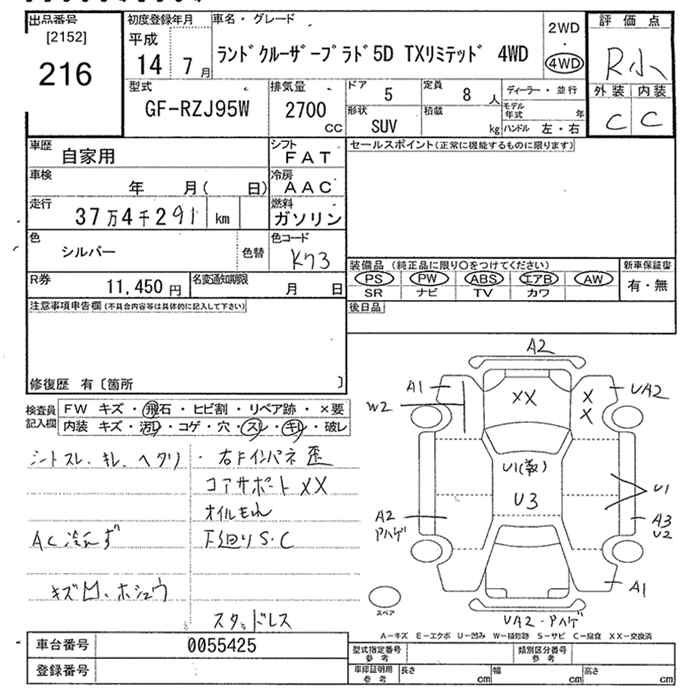 出品番号
[2152]
216
初度登録年月
平成
14 7月
車名・グレード
ランドクルーザープラド5D TXリミテッド 4WD
2WD
・
4WD
評価点
R小
外装 内装
C C
型式
GF-RZJ95W
排気量
2700
CC
ドア
5
定員
8人
形状
SUV
積載
kg
ディーラー・並行
モデル年式 年
ハンドル 左・右
車歴
自家用
シフト
FAT
車検
年 月( 日)
冷房
AAC
走行
37万4千291 km
燃料
ガソリン
色
シルバー
色替
色コード
K73
R券
11,450円
名変通知期限
月 日
セールスポイント(正常に機能するものに限ります)
装備品 (純正品に限り○をつけてください)
PS PW ABS エアB AW
SR ナビ TV カワ
新車保証書
有・無
後日品
注意事項申告欄(不具合内容等は具体的に記入して下さい)
修復歴 有〔箇所 〕
検査員記入欄
FW キズ・飛石・ヒビ割・リペア跡・×要
内装 キズ・汚レ・コゲ・穴・スレ・キレ・破レ
シートスレ、キレ、ヘタリ
・右Fインパネ歪
コアサポートXX
オイルもれ
AC冷えず
下廻りS・C
キズ凹、ホシュウ
スタッドレス
A2
A1
W2
XX
X
X
UA2
U1(数)
U3
U1
A2
アハゲ
A3
U2
A1
スペア
UA2・アハゲ
A−キズ E−エクボ U−凹み W−補修跡 S−サビ C−腐食 XX−交換済
車台番号
0055425
登録番号
型式指定番号
参考
類別区分番号
参考
車庫証明用
参考
長さ cm
幅 cm
高さ cm